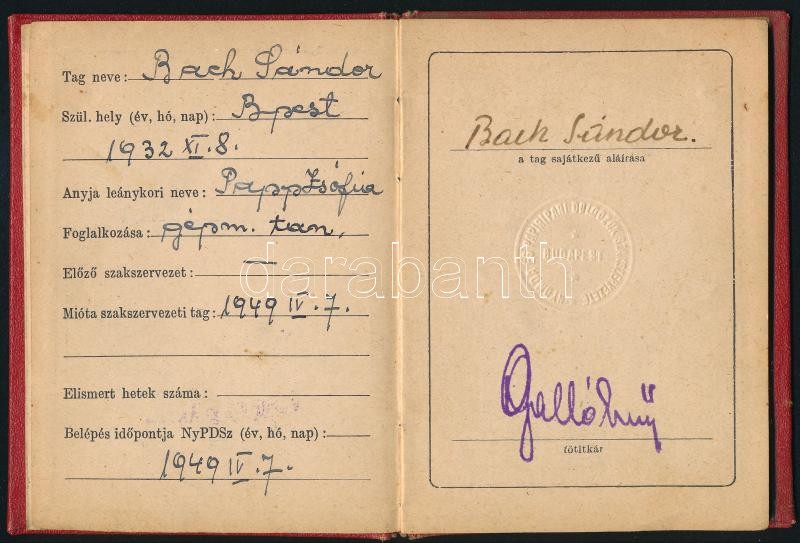 Tag neve: Bach Sándor
Szül. hely (év, hó, nap): Bpest
1932 XI. 8.
Anyja leánykori neve: Papp Zsófia
Foglalkozása: gépm. tan.
Előző szakszervezet: —
Mióta szakszervezeti tag: 1949 IV. 7.
Elismert hetek száma:
Belépés időpontja NyPDSz (év, hó, nap):
1949 IV. 7.
Bach Sándor.
a tag sajátkezű aláírása
BUDAPEST
főtitkár
darabanth